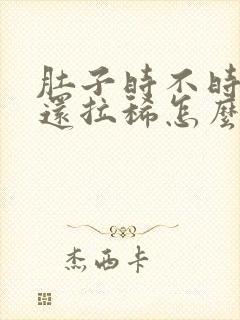 肚子時不時
還拉稀怎麼
杰西卡